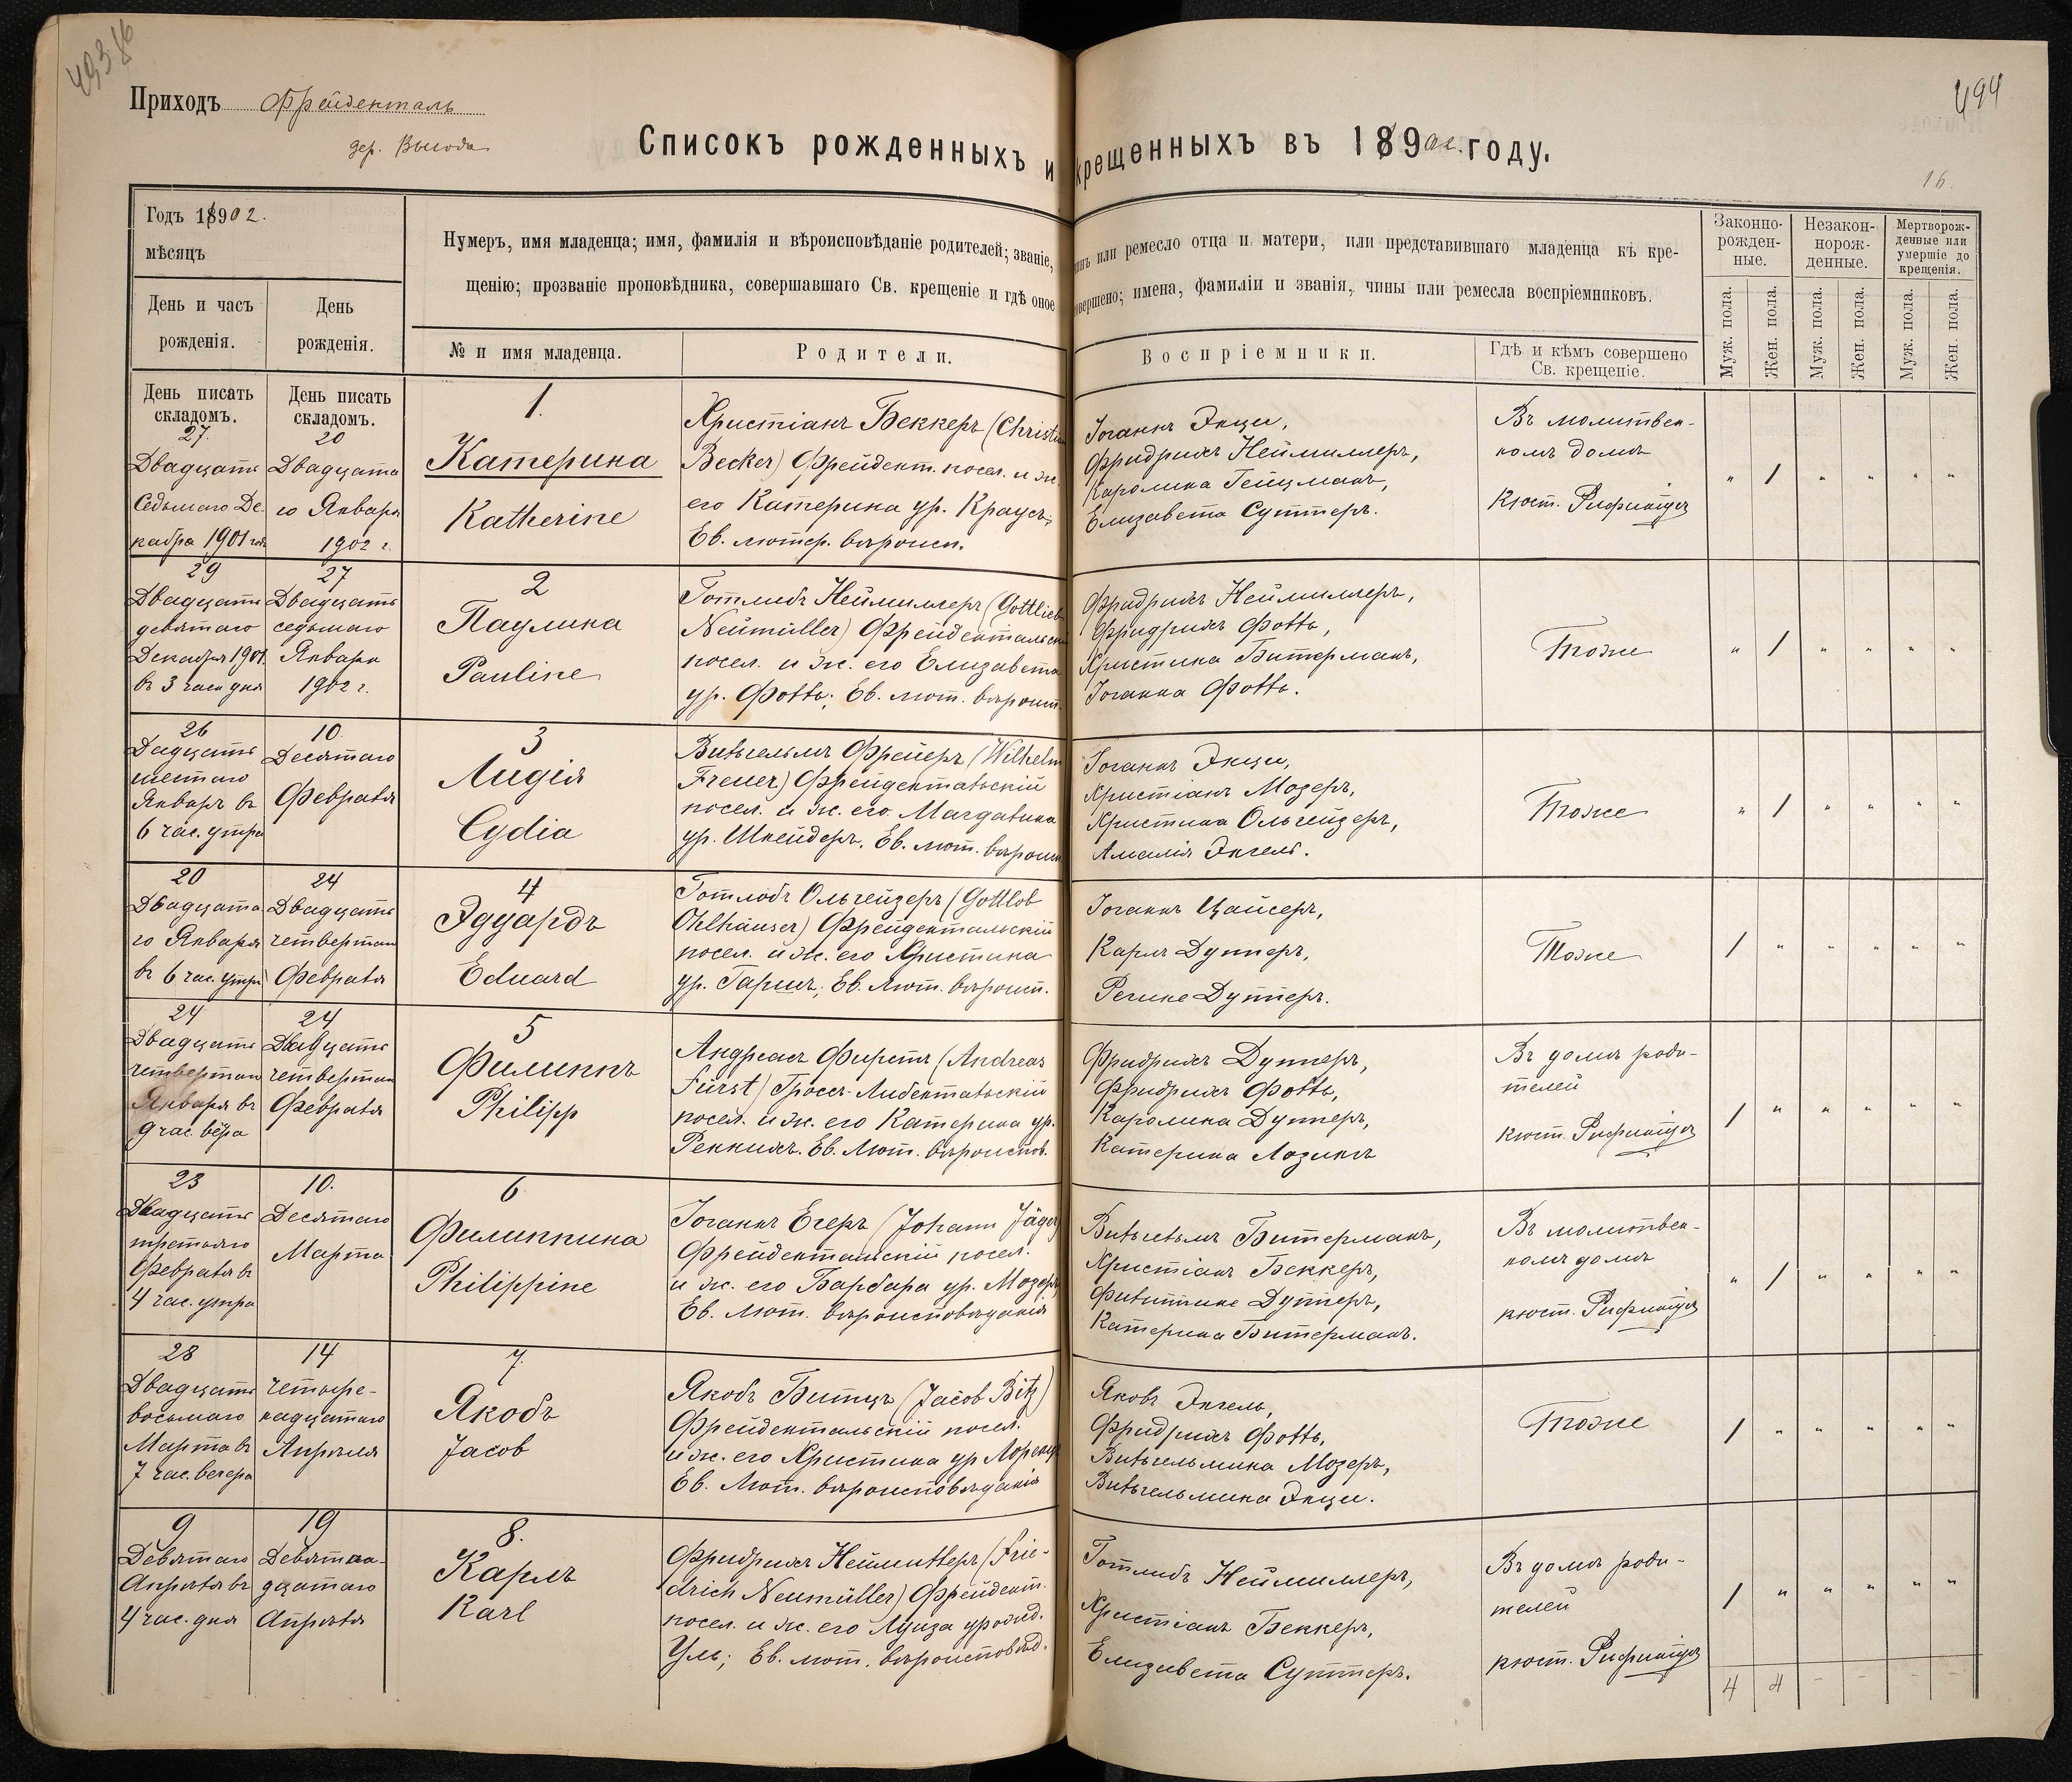 494
Приходъ Фрейденталь
дер. Выгода
Списокъ рожденныхъ и крещенныхъ въ 1902 году.
16.
Годъ 1902.
мѣсяцъ
Нумеръ, имя младенца; имя, фамилія и вѣроисповѣданіе родителей; званіе, чинъ или ремесло отца и матери, или представившаго младенца къ кре-
щенію; прозваніе проповѣдника, совершавшаго Св. крещеніе и гдѣ оное совершено; имена, фамиліи и званія, чины или ремесла воспріемниковъ.
Законно-
рожден-
ные.
Незакон-
норож-
денные.
Мертворож-
денные или
умершіе до
крещенія.
День и часъ
рожденія.
День
рожденія.
№ и имя младенца.
Родители.
Воспріемники.
Гдѣ и кѣмъ совершено
Св. крещеніе.
Муж. пола.
Жен. пола.
Муж. пола.
Жен. пола.
Муж. пола.
Жен. пола.
День писать
складомъ.
День писать
складомъ.
27.
Двадцать
Седьмаго Де-
кабра 1901 года
20
Двадцата
го Января
1902 г.
1.
Катерина
Katherine
Христіанъ Беккеръ (Christian
Becker) Фрейдент. посел. и ж.
его Катерина ур. Краусъ;
Ев. лютер. вѣроисп.
Іоганнъ Экци,
Фридрихъ Неймиллеръ,
Каролина Гейцманъ,
Елизавета Суттеръ.
Въ молитвен-
номъ домѣ
Кюст.
" 1 " " " "
29
Двадцать
девятаго
Декабря 1901
въ 3 часа дня
27
Двадцать
седьмаго
Января
1902 г.
2
Паулина
Pauline
Готлибъ Неймиллеръ (Gottlieb
Neumüller) Фрейдентальскій
посел. и ж. его Елизавета
ур. Фоттъ; Ев. лют. вѣроисп.
Фридрихъ Неймиллеръ,
Фридрихъ Фоттъ,
Христина Битерманъ,
Іоганна Фоттъ.
Тоже
" 1 " " " "
26
Дадцать
шестаго
Январъ въ
6 час. утра
10.
Десятаго
Февраля
3
Лидія
Lydia
Вильгельмъ Фрейеръ (Wilhelm
Freuer) Фрейдентальскій
посел. и ж. его Магдалина
ур. Шнейдеръ. Ев. лют. вѣроисп.
Іоганнъ Экци,
Христіанъ Мозеръ,
Христина Ольгейзеръ,
Амалія Энгель.
Тоже
" 1 " " " "
20
Двадцата
го Января
въ 6 час. утра
24
Двадцать
четвертаго
Февраля
4
Эдуардъ
Eduard
Готлобъ Ольгейзеръ (Gottlob
Ohlhäuser) Фрейдентальскій
посел. и ж. его Христина
ур. Гаршъ; Ев. Лют. вѣроисп.
Іоганнъ Цайсеръ,
Карлъ Дуттеръ,
Регине Дуттеръ.
Тоже
1 " " " " "
24
Двадцать
четвертаго
Января въ
9 час. вера
24
Двадцать
четвертаго
Февраля
5
Филиппъ
Philipp
Андреасъ Фирстъ (Andreas
Fürst) Гросъ-Либентальскій
посел. и ж. его Катерина ур.
Реннихъ. Ев. Лют. вѣроиспов.
Фридрихъ Дуттеръ,
Фридрихъ Фоттъ,
Каролина Дуттеръ,
Катерина Лозингъ
Въ домѣ роди-
телей
кюст.
1 " " " " "
23
Двадцать
третьяго
Февраля въ
4 час. утра
10.
Десятаго
Марта
6
Филиппина
Philippine
Іоганнъ Егеръ (Johann Jäger)
Фрейдентальскій посел.
и ж. его Барбара ур. Мозеръ;
Ев. Лют. вѣроисповѣданія
Вильгельмъ Битерманъ,
Христіанъ Беккеръ,
Филиппине Дуттеръ,
Катерина Битерманъ.
Въ молитвен-
номъ домѣ
кюст.
" 1 " " " "
28
Двадцать
восьмаго
Марта въ
7 час. вечера
14
Четыре-
надцатаго
Апрѣля
7.
Якобъ
Jacob
Якобъ Битцъ (Jacob Bitz)
Фрейдентальскій посел.
и ж. его Христина ур Лоренцъ
Ев. Лют. вѣроисповѣданія
Яковъ Энгель,
Фридрихъ Фоттъ,
Вильгельмина Мозеръ,
Вильгельмина Экци.
Тоже
1 " " " " "
9
Девятаго
Апрѣля въ
4 час. дня
19
Девятна-
дцатаго
Апрѣля
8.
Карлъ
Karl
Фридрихъ Неймиллеръ (Frie-
drich Neumüller) Фрейдент.
посел. и ж. его Луиза урожд.
Уль; Ев. лют. вѣроисповѣд.
Готлибъ Неймиллеръ,
Христіанъ Беккеръ,
Елизавета Суттеръ.
Въ домѣ роди-
телей
кюст.
1 " " " " "
4 4 - - - -